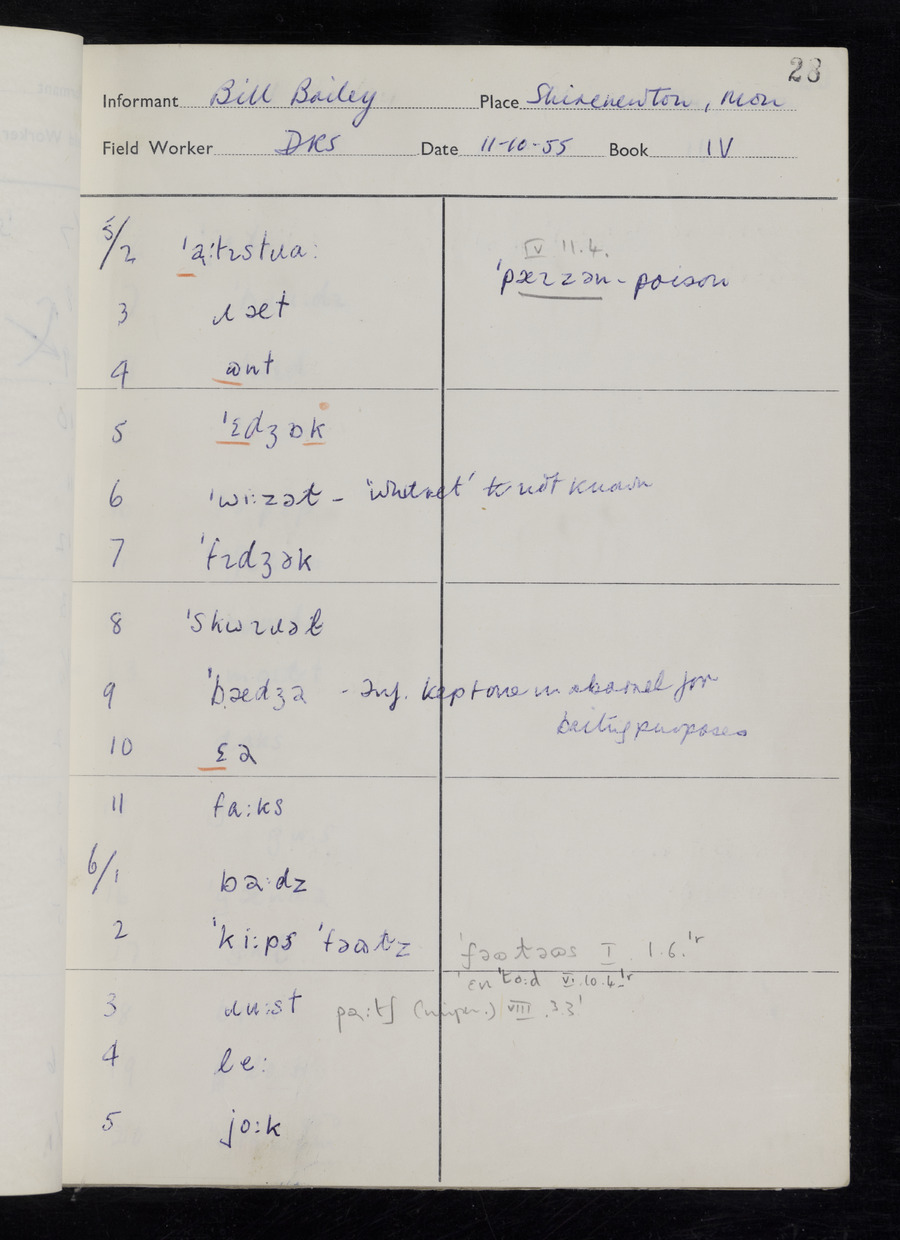 23
Informant Bill Bailey Place Shirenewton, Mon
Field Worker DRS Date 11-10-55 Book IV
5/2 ˈa̜ːtɪstɹaː
IV 11.4.
ˈpəɪzən - poison
3 ɹæt
4 ɷnt
5 ˈɛdʒɒk
6 ˈwiːzəɫ - 'whitret' not known
7 ˈfɪdʒək
8 ˈskwɪɹəɫ
9 ˈbædʒə - inf. kept one in a barrel for
baiting purposes
10 ɛə
11 faːks
6/1 bəːdz
2 ˈkiːps ˈfəɷɫz
ˈfəɷɫəɷs I 1.6.ˈr
VI.10.4.ˈr
3 ɹuːst
VIII 3.3ˈ
4 leː
5 joːk